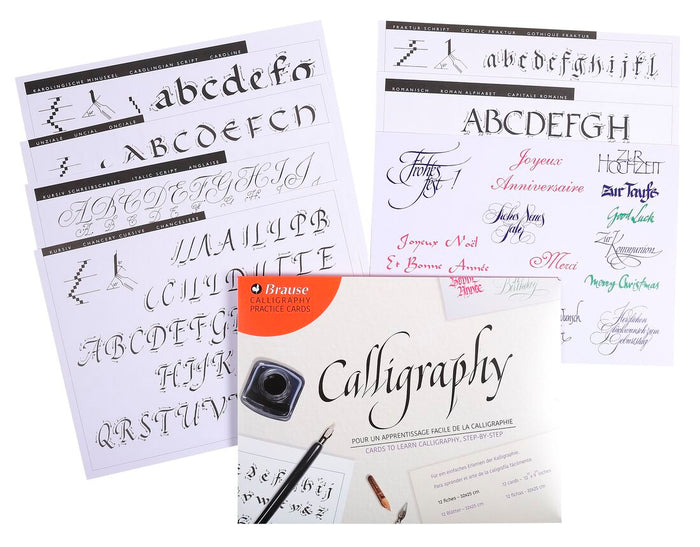 KAROLINGISCHE MINUSKEL CAROLINGIAN SCRIPT CAROLINE
abcdefg
UNZIALE UNCIAL ONCIALE
ABCDEFGH
KURSIV SCHREIBSCHRIFT ITALIC SCRIPT ANGLAISE
ABCDEFGHIJ
KURSIV CHANCERY CURSIVE CHANCELIERE
ABCDEFG
HIJK
QRSTUV
FRAKTUR SCHRIFT GOTHIC FRAKTUR GOTHIQUE FRAKTUR
abcdefghijkl
ROMANISCH ROMAN ALPHABET CAPITALE ROMAINE
ABCDEFGH
Frohes
fest!
Joyeux
Anniversaire
ZUR
HOCHZEIT
zur Taufe
Frohes Neues
Jahr
Good Luck
Joyeux Noël
Et Bonne Année
Merci
Zur
Kommunion
Merry Christmas
Herzlichen
Glückwunsch zum
Geburtstag
Brause
CALLIGRAPHY
PRACTICE CARDS
Bonne
Année
Birthday
Calligraphy
POUR UN APPRENTISSAGE FACILE DE LA CALLIGRAPHIE
CARDS TO LEARN CALLIGRAPHY, STEP-BY-STEP
Für ein einfaches Erlernen der Kalligraphie.
Para aprender el arte de la caligrafía fácilmente.
12 fiches - 32x25 cm
12 Cards - 13" x 9" inches
12 Blätter - 32x25 cm
12 fichas - 32x25 cm